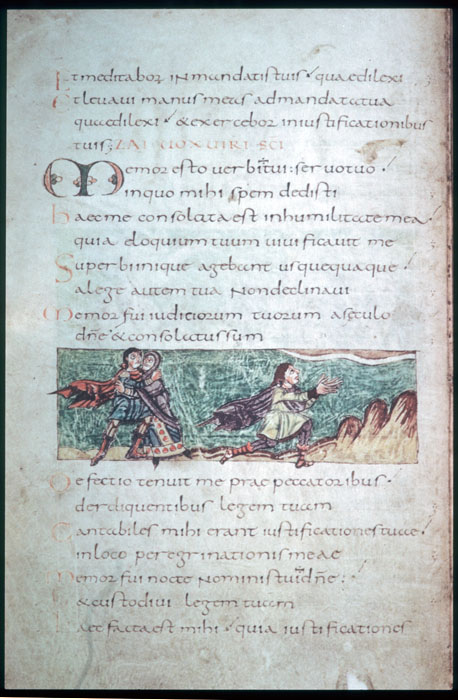 Et meditabor in mandatis tuis quae dilexi
Et levavi manus meas ad mandata tua
quae dilexi & exercebor in iustificationibus
tuis: ZAI VOX VIRI ECL
Memor esto verbi tui servo tuo
in quo mihi spem dedisti
Haec me consolata est in humilitate mea
quia eloquium tuum vivificavit me
Superbi inique agebant usquequaque
a lege autem tua non declinavi
Memor fui iudiciorum tuorum a saeculo
dne & consolatus sum
Defectio tenuit me prae peccatoribus
derelinquentibus legem tuam
Cantabiles mihi erant iustificationes tuae
in loco peregrinationis meae
Memor fui nocte nominis tui dne:
& custodivi legem tuam
Haec facta est mihi quia iustificationes